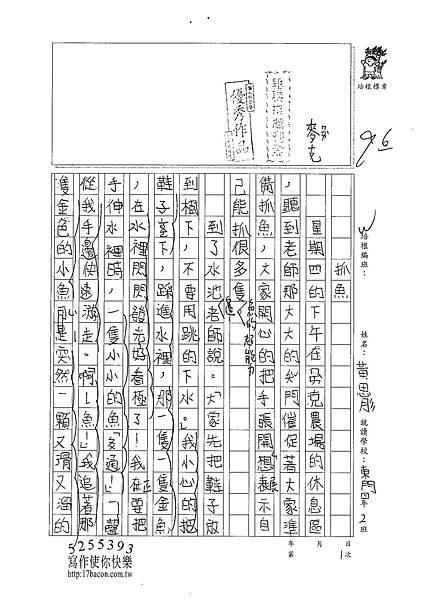 抓魚
星期四的下午在麥克農場的休息區
，聽到老師那大大的嗓門催促著大家準
備抓魚，大家開心的把手張開想表示自
己能抓很多隻
到了水池老師說：「大家先把鞋子放
到樹下，不要用跳的下水。」我小心的把
鞋子放下，踩進水裡，那一隻一隻金魚
，在水裡閃閃發光好看極了！我正要把
手伸水裡時，一隻小小的魚「多通！」一聲
從我手邊快速游走。啊！魚！我追著那
隻金色的小魚可是突然一顆又滑又溜的
優秀作品
麥克
96
培根標章
W
培根編班：
姓名：黃思彤
就讀學校：東門四年2班
年 月 日
第 1 次
5255393
寫作使你快樂
http://17bacon.com.tw